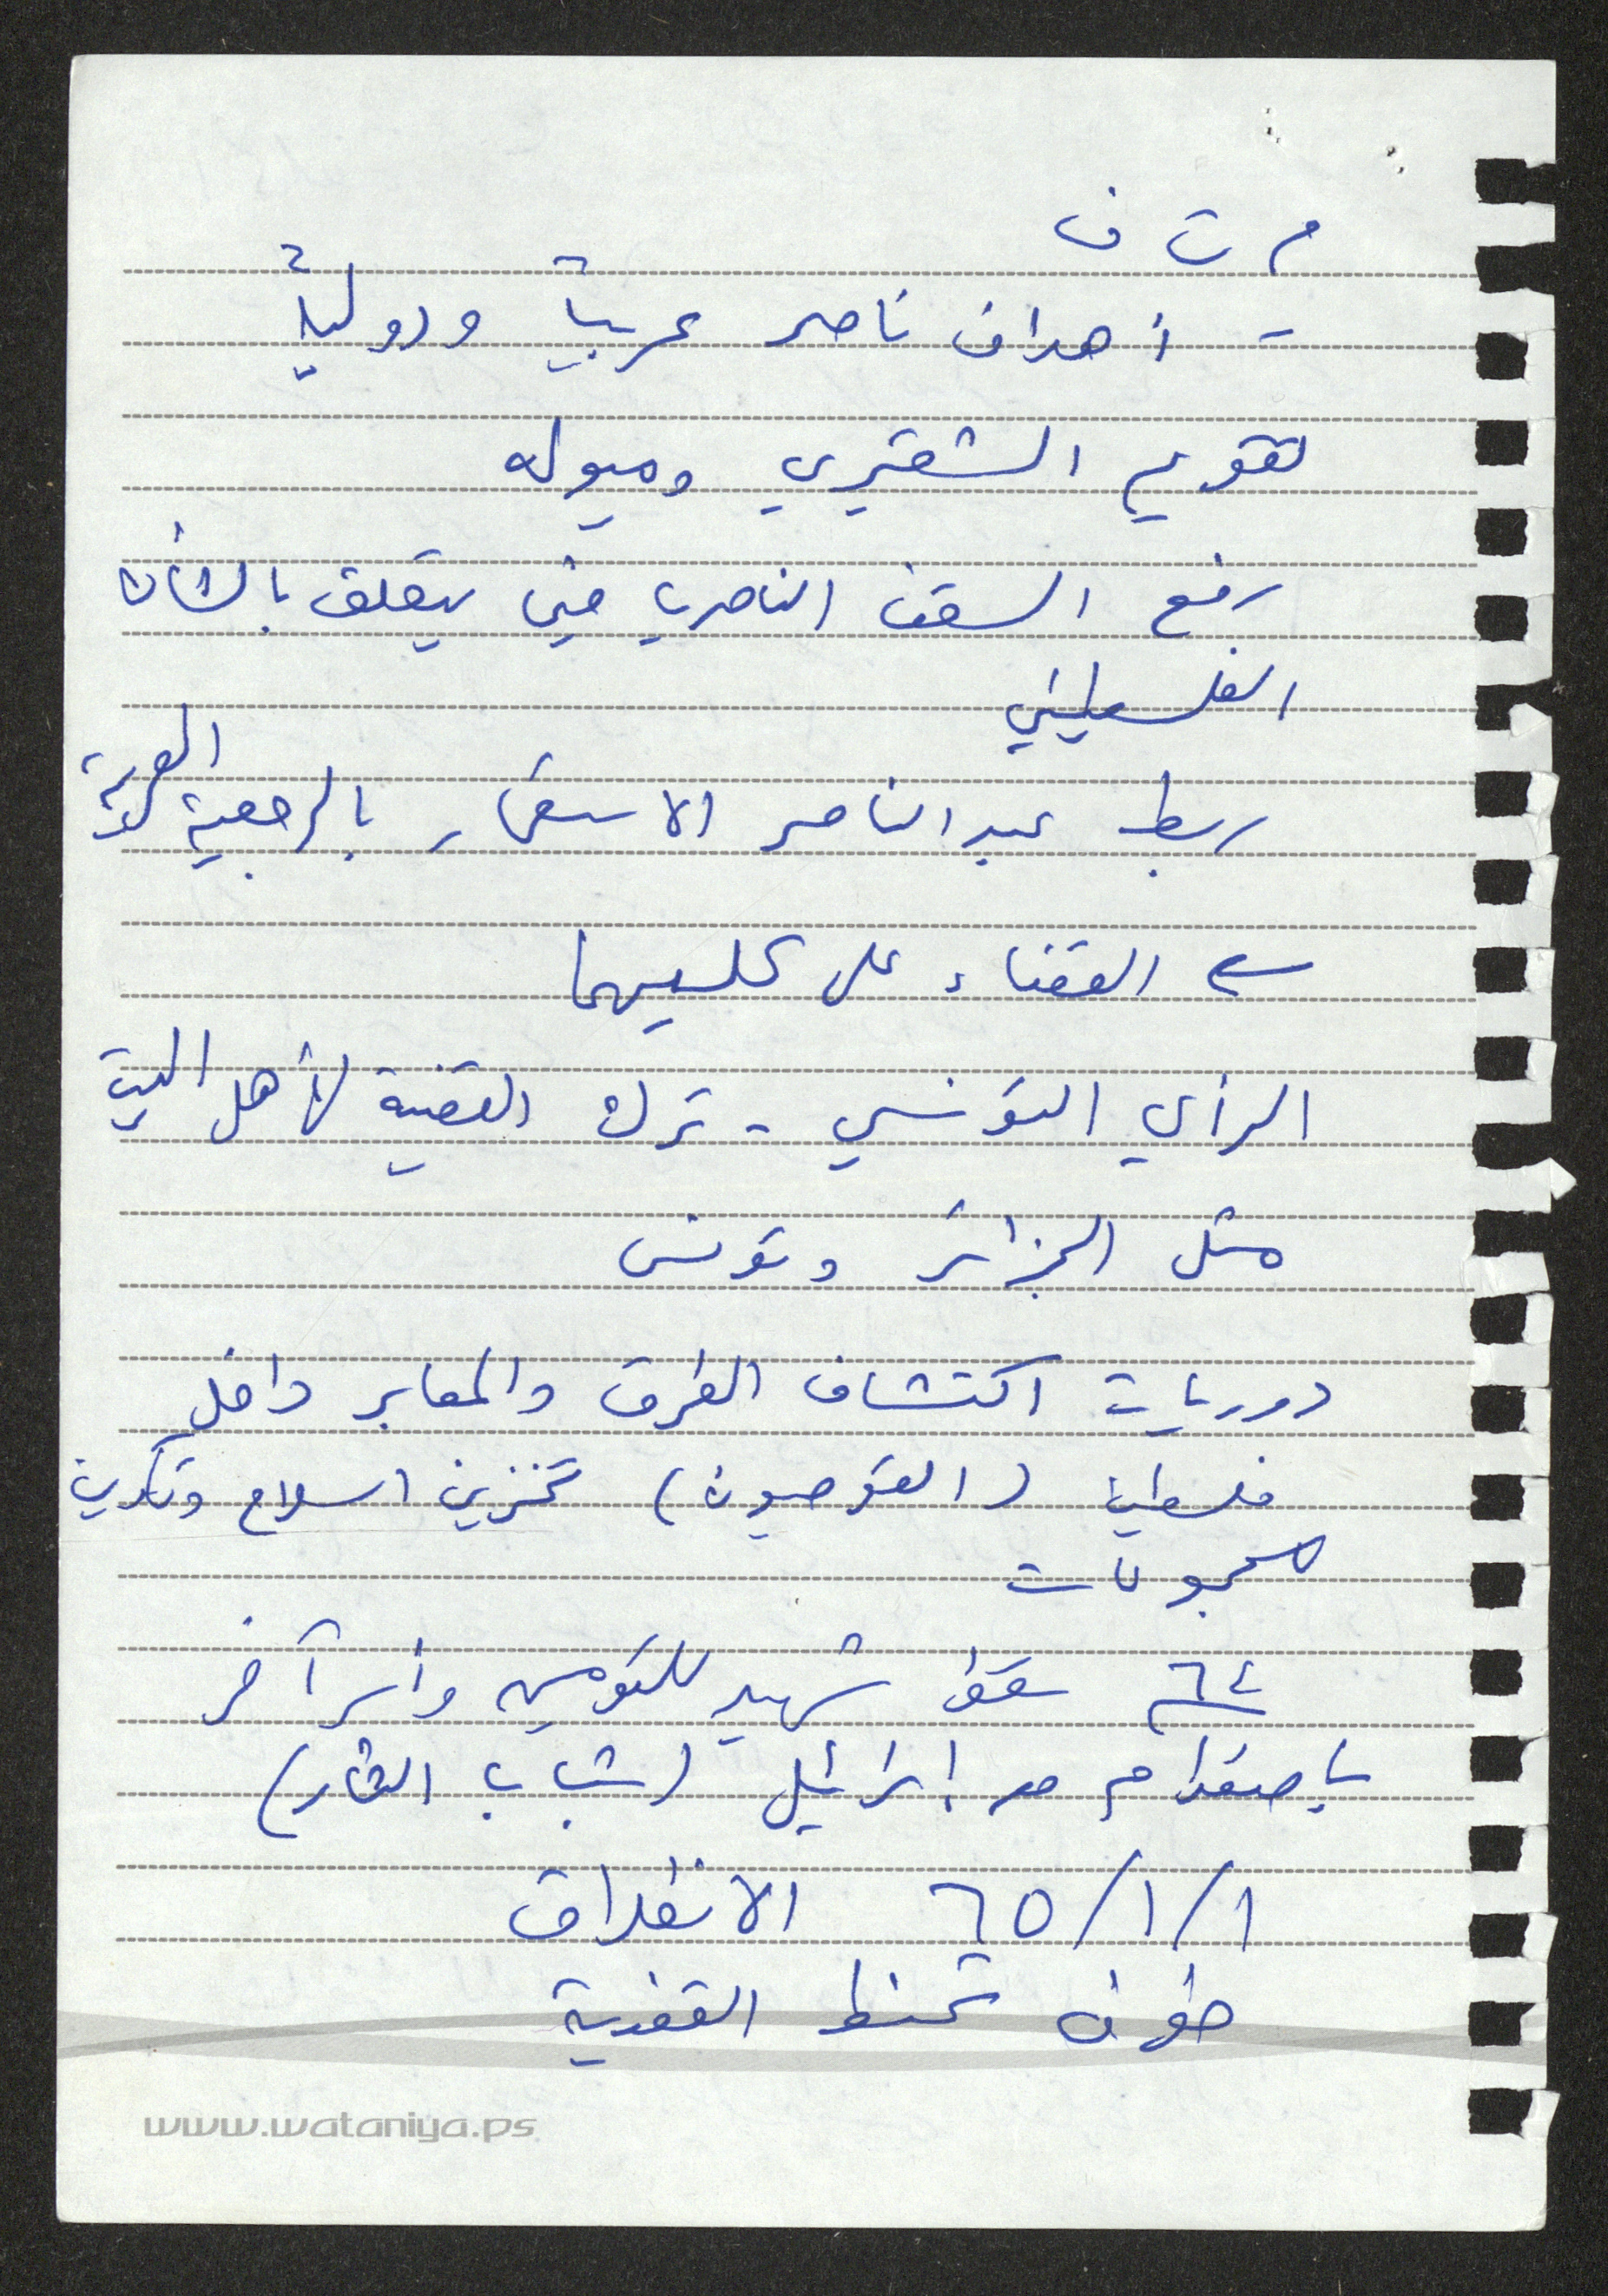 م ت ف
- أهداف ناصر عربياً ودولياً
تقويم الشقيري وميوله
رفع السقف الناصري فيما يتعلق بالشأن
الفلسطيني
ربط عبد الناصر الاستعمار بالرجعية العربية
القضاء على كليهما
الرأي التونسي - ترك القضية لأهل البيت
مثل الجزائر وتونس
دوريات اكتشاف الطرق والمعابر داخل
فلسطين (القوميون) تخزين اسلاح وتكوين
للمجموعات
٦٤ سقط شهيد للقوميين وأسر آخر
باصطدام مع إسرائيل (شباب الثأر)
١/١/٦٥ الانطلاق
خوف تحنط القضية
www.wataniya.ps